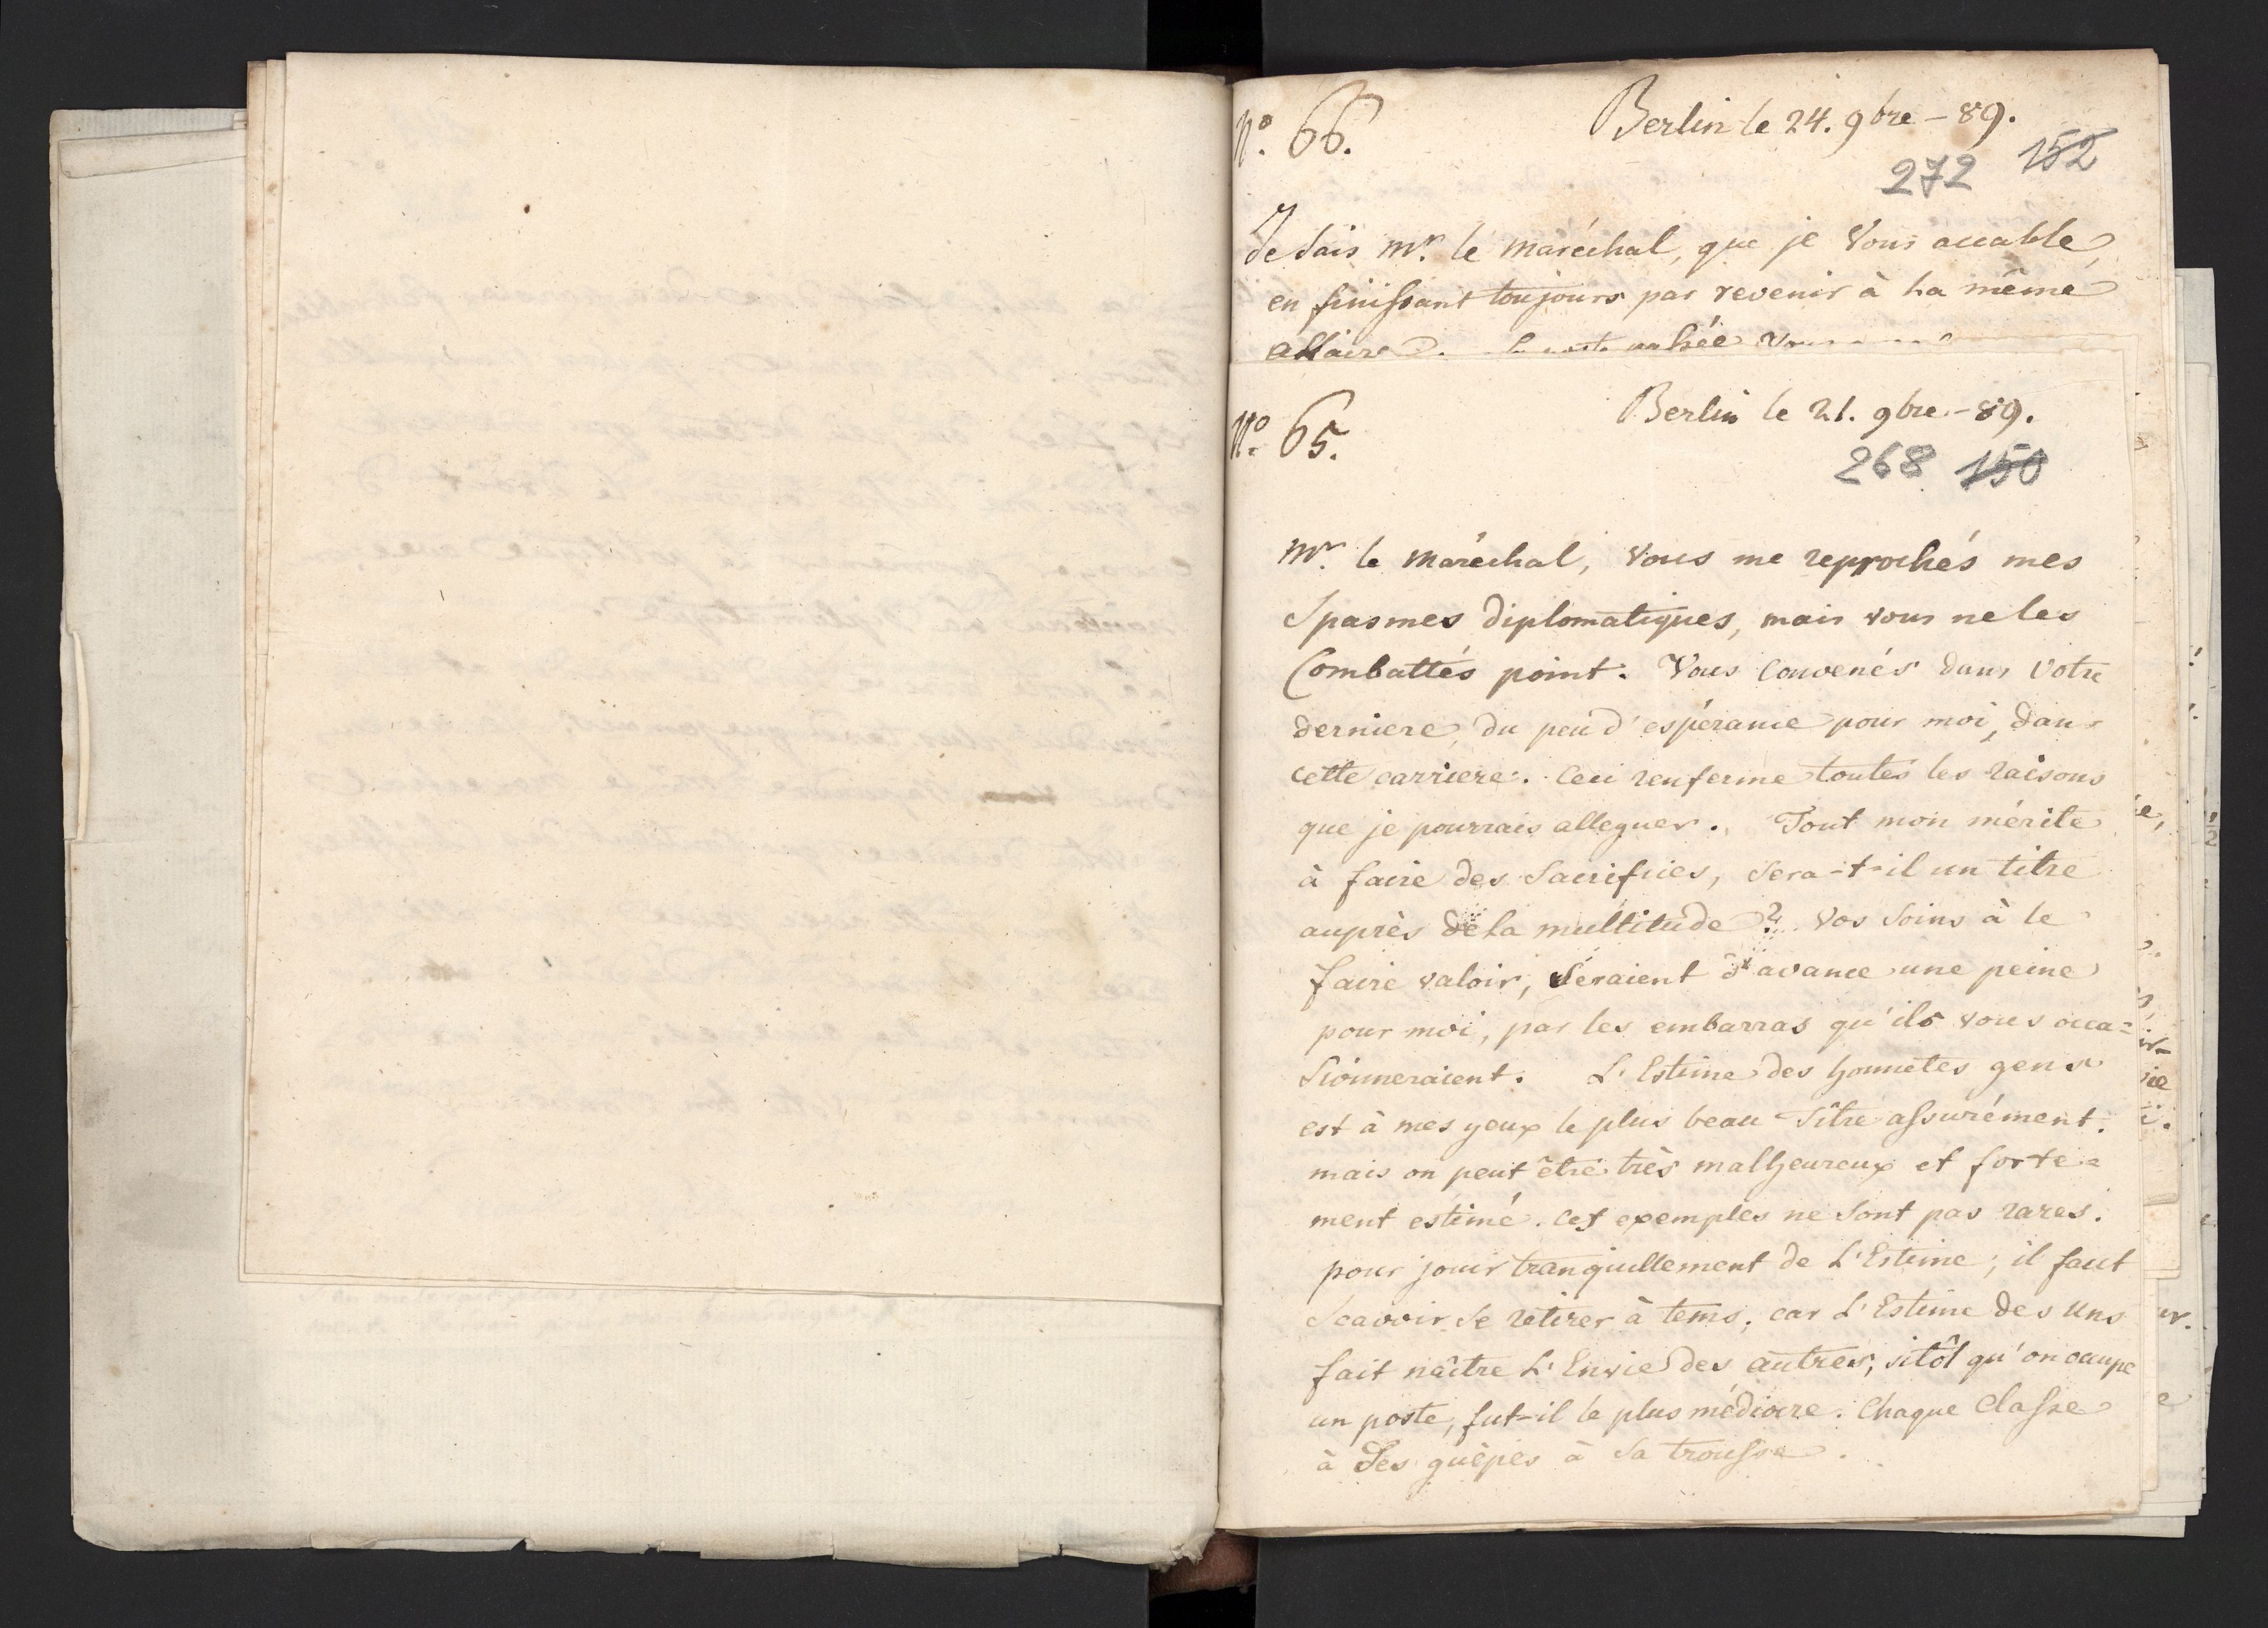 N.º 66.
Berlin le 24. 9bre - 89.
272 152
Je sais Mr. le Maréchal, que je vous accable,
en finissant toujours par revenir à la même
affaire.
N.º 65.
Berlin le 21. 9bre - 89.
268 150
Mr. le Maréchal, vous me reprochés mes
Spasmes diplomatiques, mais vous ne les
Combattés point. Vous convenés dans votre
derniere, du peu d'espérance pour moi, dans
cette carriere. Ceci renferme toutes les raisons
que je pourrais alleguer. Tout mon mérite
à faire des sacrifices, sera-t-il un titre
auprès de la multitude? Vos soins à le
faire valoir, seraient d'avance une peine
pour moi, par les embarras qu'ils vous occa=
sionneraient. L'Estime des honnetes gens
est à mes yeux le plus beau Titre assurément.
mais on peut être très malheureux et forte=
ment estimé. Ces exemples ne sont pas rares.
pour jouir tranquillement de L'Estime; il faut
Scavoir se retirer à tems; car L'Estime des uns
fait naître L'Envie des autres, sitôt qu'on occupe
un poste, fut-il le plus médiocre. Chaque Classe
à Ses guêpes à sa trousse.